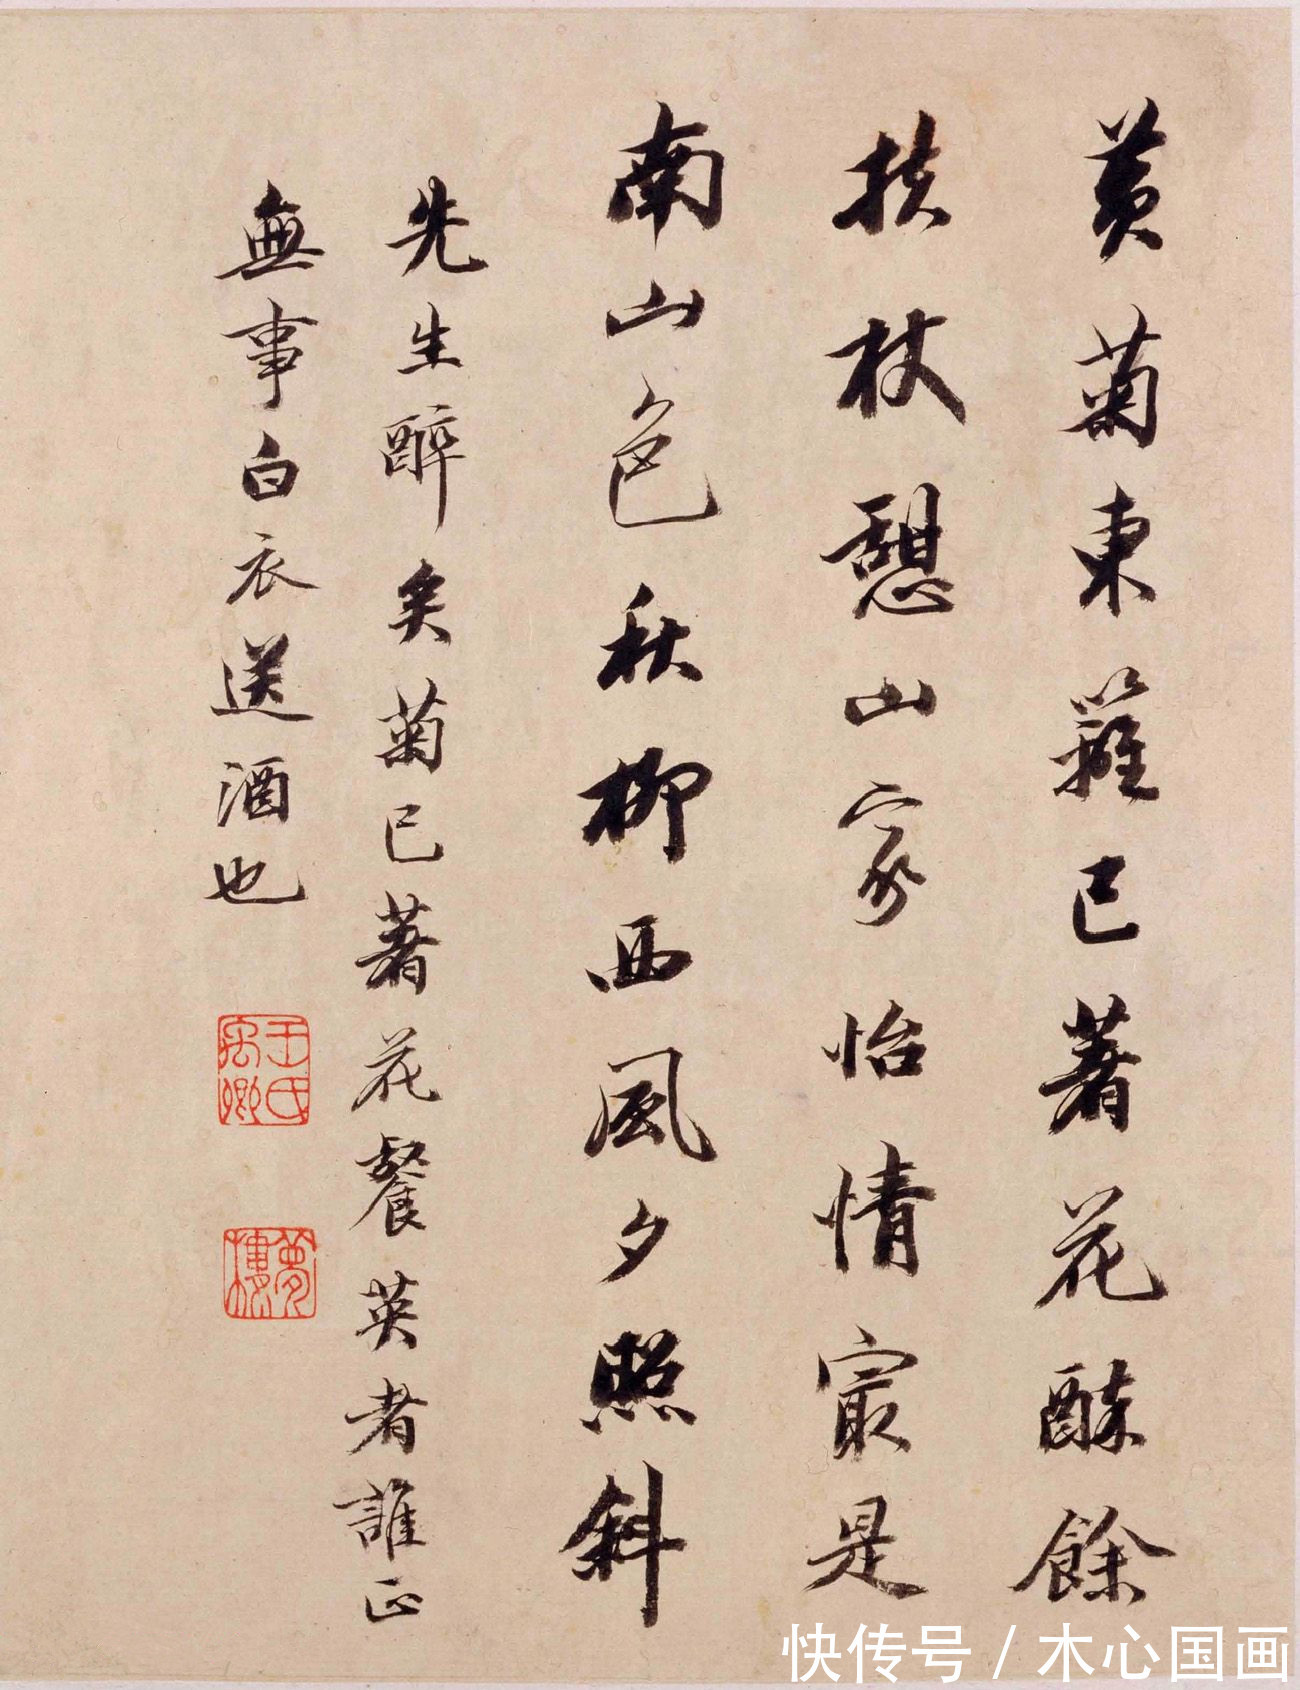 黄菊東籬已著花酥餘
扶杖憩山家怡情㝡是
南山色秋柳西風夕照斜
先生醉矣菊已著花餐英者誰正
無事白衣送酒也
王氏禹卿
夢樓
快传号/木心国画